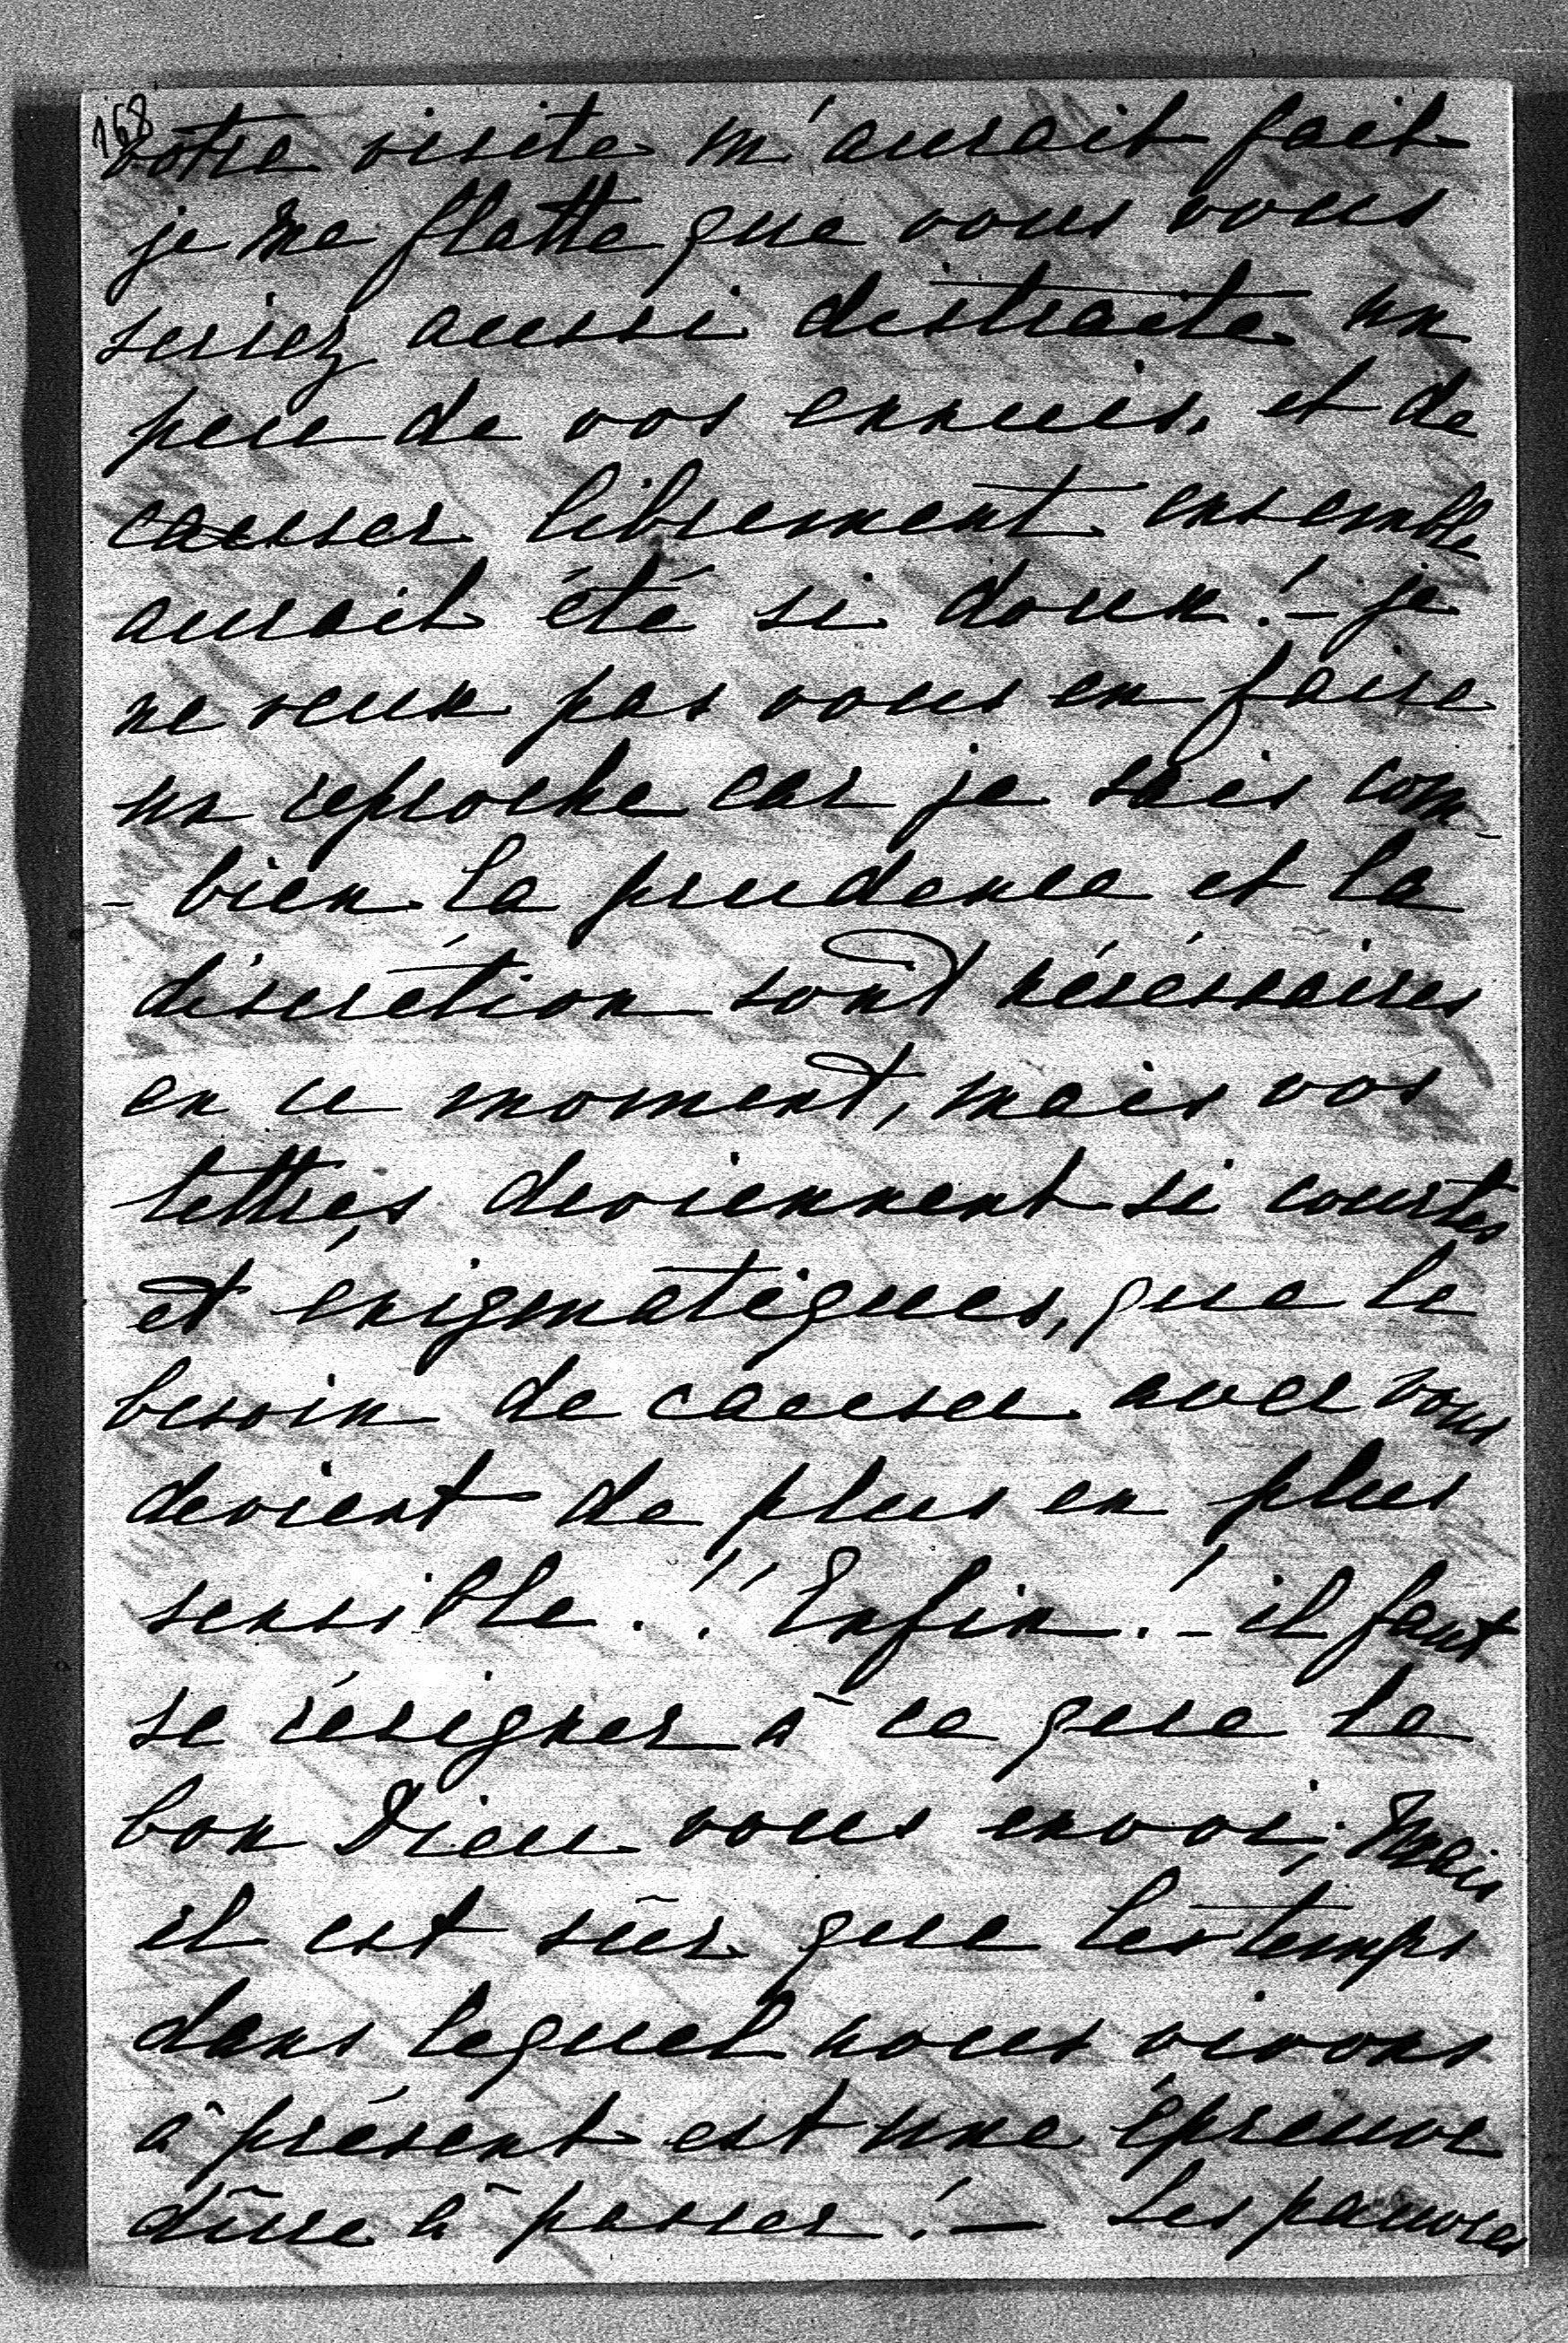 168
votre visite m'aurait fait
je me flatte que vous vous
seriez aussi distraite un
peu de vos ennuis. et de
causer librement ensemble
aurait été si doux! – je
ne veux pas vous en faire
un reproche car je sais com-
- bien la prudence et la
discrétion sont nécéssaires
en ce moment, mais vos
lettres deviennent si courtes
et énigmatiques, que le
besoin de causer avec vous
devient de plus en plus
sensible.!! Enfin! – il faut
se résigner à ce que le
bon Dieu vous envoi, mais
il est sûr que les temps
dans lequel nous vivons
à présent est une épreuve
dûre à passer! — Les pauvres